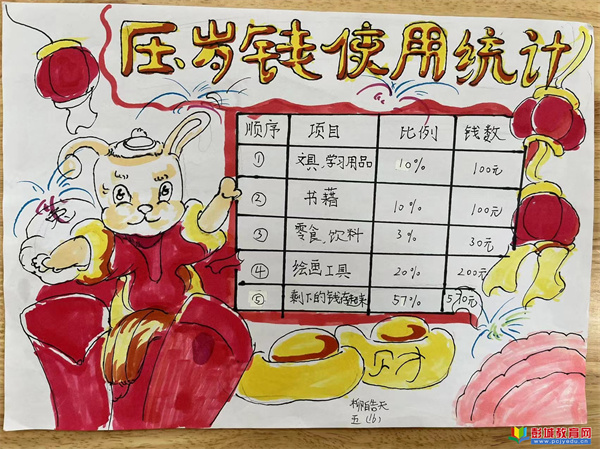 压岁钱使用统计
顺序 项目 比例 钱数
① 文具.学习用品 10% 100元
② 书籍 10% 100元
③ 零食.饮料 3% 30元
④ 绘画工具 20% 200元
⑤ 剩下的钱存起来 57% 570元
五(16)
彭城教育网
www.pcjyedu.cn